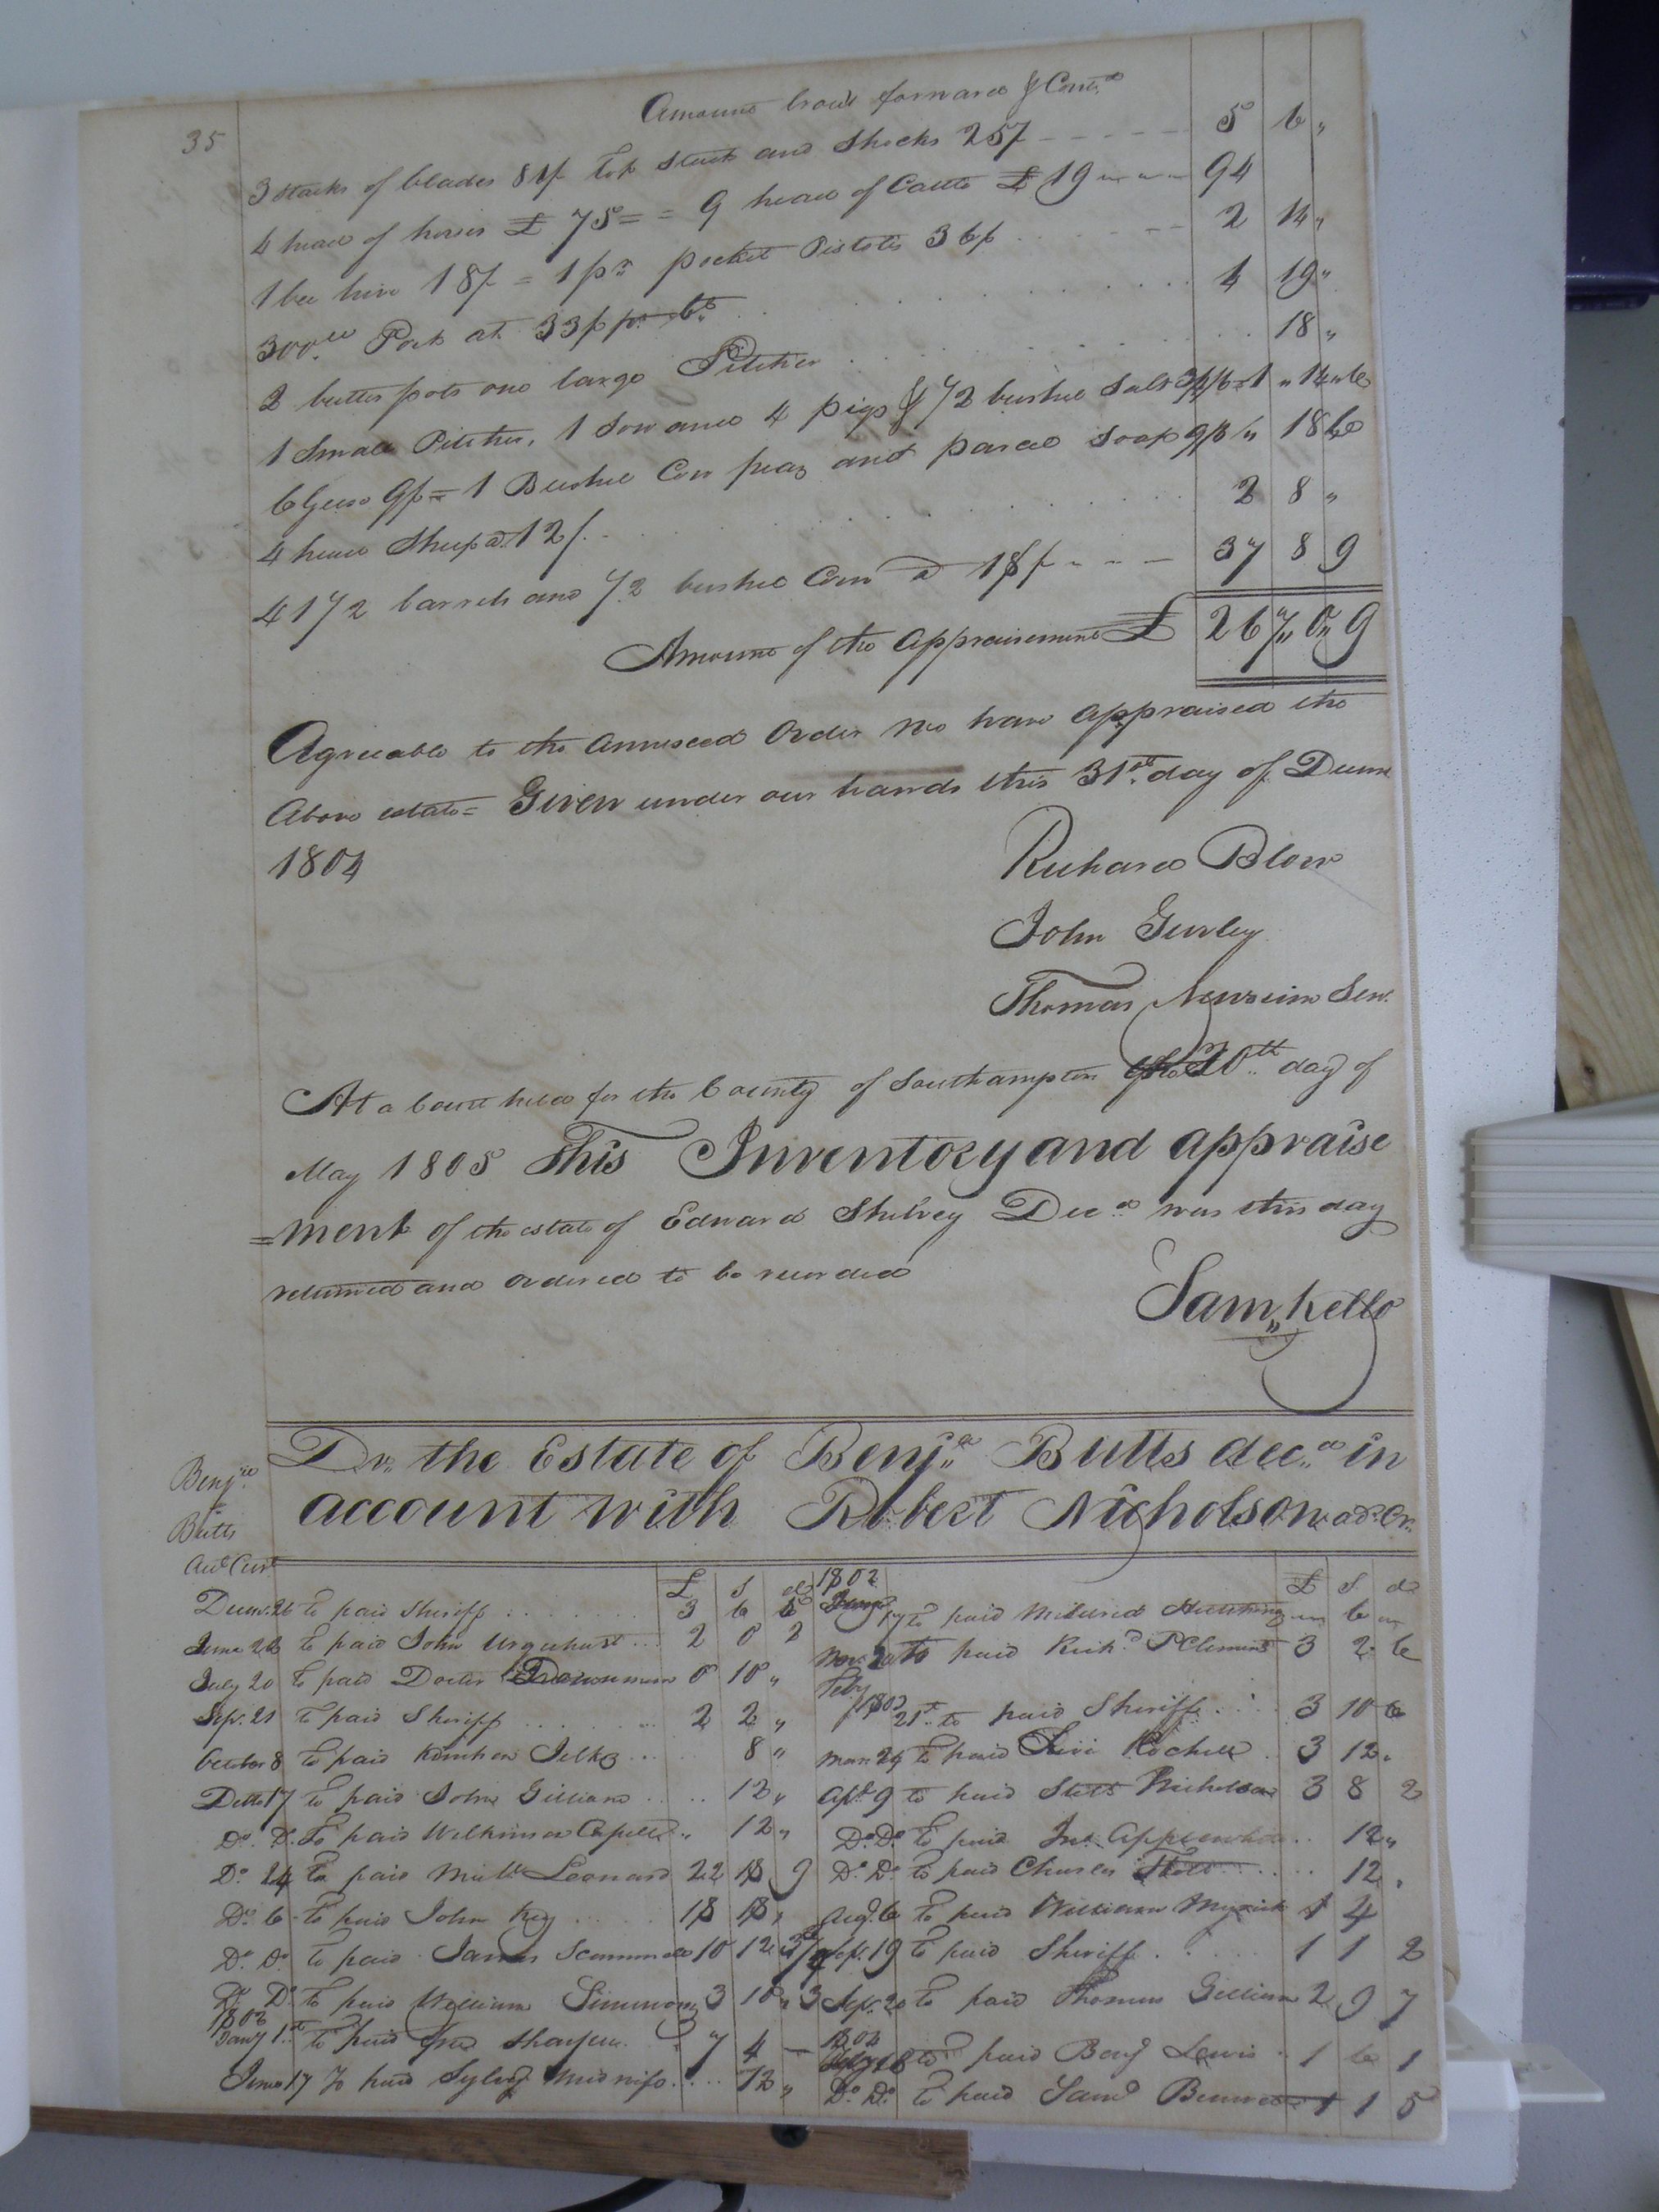 35
Amount brout forward & Contd
3 stacks of blades 81/ Top stack and shocks 25/ 5 6 "
4 head of horses £ 75 = = 9 head of Cattle £ 19 94
1 bee hive 18/ = 1 pr pocket Pistols 36/ 2 14 "
300 lb Pork at 33/ pr Ct 4 19 "
2 butter pots one large Pitcher 18 "
1 Small Pitcher, 1 Sow and 4 pigs & 1/2 bushel Salt 1 " 14 " 6
6 Geese 9/ = 1 Bushel Corn peas and parcel Soap 9/ " 18
4 head Sheep a 12/ 2 8 "
41 1/2 barrels and 1/2 bushel Corn a 18/ 37 8 9
Amount of the appraisement £ 267 " 0 " 9
Agreeable to the annexed Order we have appraised the
Above estate = Given under our hands this 31st day of Decem
1804
Richard Blow
John Gurley
Thomas Newsum Sen.
At a Court held for the County of Southampton the 20th day of
May 1805 This Inventory and appraise
=ment of the estate of Edward Shelvey Decd was this day
returned and Ordered to be recorded
Sam Kello
Benja
Butts
Acct Curt
Dr. the Estate of Benja Butts decd in
account with Robert Nicholson ad. Cr.
£ S d
Decem. 26 to paid Sheriff 3 6
June 22 to paid John Urquhart 2 0 2
July 20 to paid Docter 10 "
Sept. 21 to paid Sheriff 2 2 "
October 8 to paid Kinchen Jelks 8 "
Ditto 17 to paid John Gilliam 12 "
Do. Do. To paid Wilkinson Capell " 12 "
Do. 24 to paid Leonard 22 18 9
Do. 6 to paid John Key 18
Do. Do. to paid James Scammell 10 12
Do. Do. to paid William Simmons 3 10 " 3
1802
Jany 1st to paid Fred Sharpen 7 4 —
June 17 To paid Sylvy Midwife 12 "
1802 £ S d
17 to paid Mildred 6
Nov. 20 to paid Richd P Clements 3 2 6
Feby
1802 21st to paid Sheriff 3 10 6
Mar. 29 to paid Levi Rochell 3 12 "
Apl. 9 to paid Nicholson 3 8 2
Do. Do. to paid Jno. Applewhite 12 "
Do. Do. to paid Charles 12 "
Aug. 6 to paid William Myrick 1 4
Sept. 19 to paid Sheriff 1 1 2
Sept. 20 to paid Thomas Gilliam 2 9 7
to paid Benj Lewis 1 6 1
Do. Do. to paid Saml 1 1 5